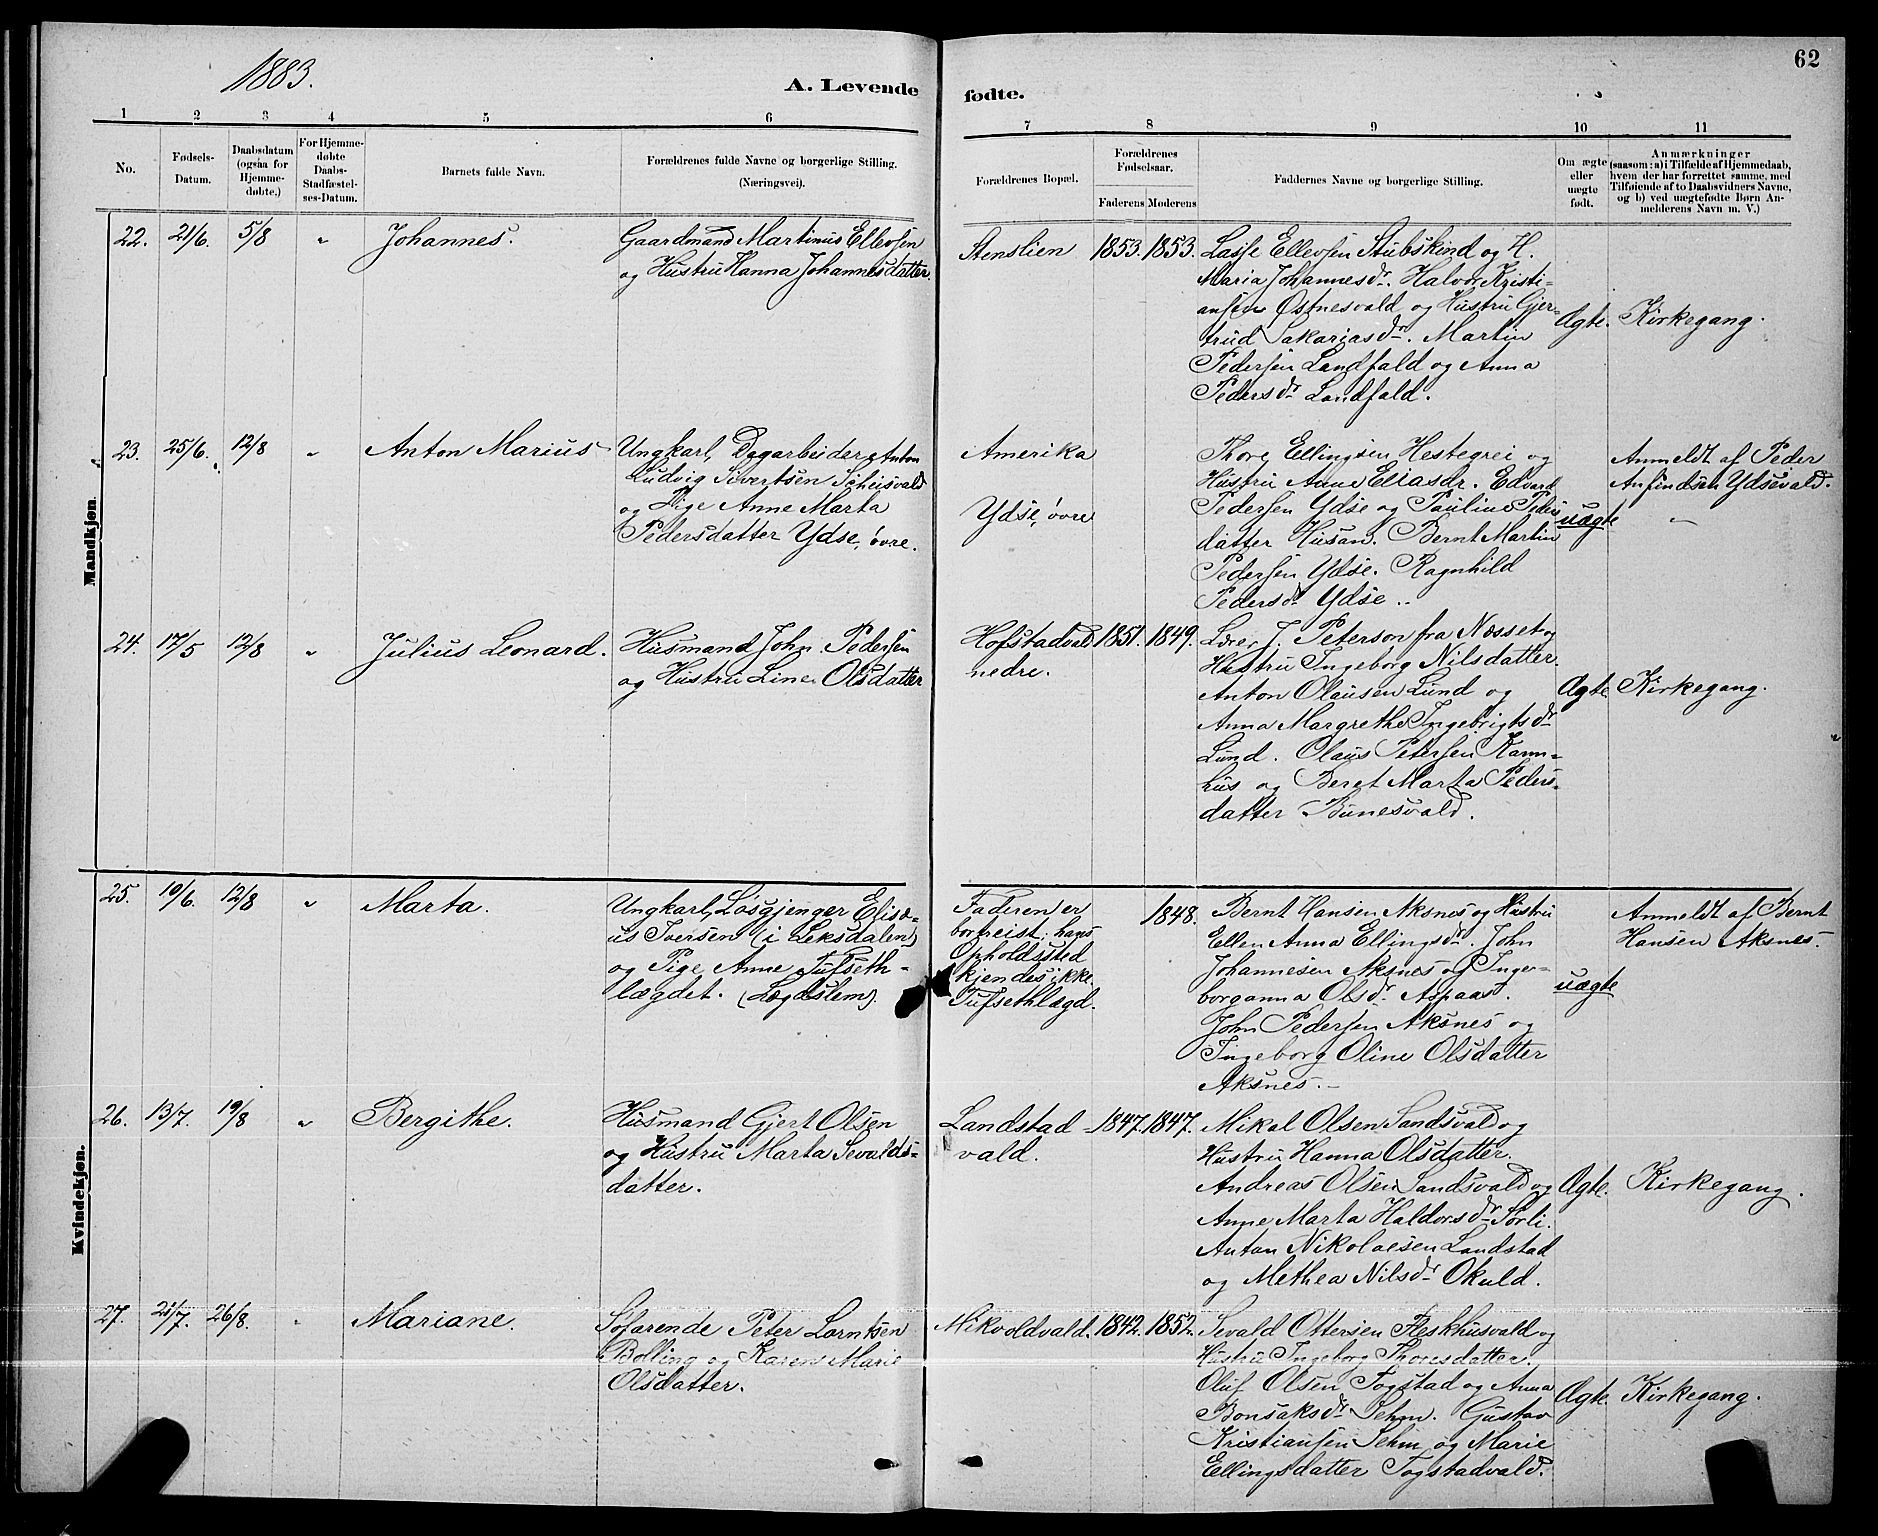 1883.
62
A. Levende fødte.
1 2 3 4 5 6 7 8 9 10 11
No.
Fødsels-
Datum.
Daabsdatum
(ogsaa for
Hjemme-
døbte.)
For Hjemme-
døbte
Daabs-
Stadfæstel-
ses-Datum.
Barnets fulde Navn.
Forældrenes fulde Navne og borgerlige Stilling.
(Næringsvei).
Forældrenes Bopæl.
Forældrenes
Fødselsaar.
Faderens Moderens
Faddernes Navne og borgerlige Stilling.
Om ægte
eller
uægte
født.
Anmærkninger
(saasom: a) i Tilfælde af Hjemmedaab,
hvem der har forrettet samme, med
Tilføiende af to Daabsvidners Navne,
og b) ved uægtefødte Børn An-
melderens Navn m. V.)
Mandkjøn
22. 21/6. 5/8 " Johannes.
Gaardmand Martinus Ellevsen
og Hustru Hanna Johannesdatter.
Stenslien 1853. 1853.
Lasse Ellevsen Stubskind og H.
Maria Johannesdr. Halvor Kristi-
ansen Østnesvald og Hustru Gjer-
trud Sakariasdr. Martin
Pedersen Landfald og Anna
Pedersdr Landfald.
Ægte. Kirkegang.
23. 25/6. 12/8 " Anton Marius
Ungkarl, Dagarbeider Anton
Ludvig Sivertsen
og Pige Anne Marta
Pedersdatter Ydse, øvre.
Amerika
Ydse, øvre
Thore Ellingsen Hestegrei og
Hustru Anne Eliasdr. Edvard
Pedersen Ydse og Pauline Peders
datter Husan. Bernt Martin
Pedersen Ydse. Ragnhild
Pedersdr Ydse..
uægte
Anmeldt af Peder
Anfindsen Ydsevald.
"
24. 17/5 12/8 " Julius Leonard.
Husmand John Pedersen
og Hustru Line Olsdatter
Hofstadvald
nedre.
1851. 1849.
Lærer J. Peterson fra Næsset og
Hustru Ingeborg Nilsdatter.
Anton Olausen Lund og
Anna Margrethe Ingebrigtsdr
Lund. Olaus Petersen Kann-
hus og Beret Marta Peders-
datter Bunesvald.
Ægte Kirkegang.
Kvindekjøn.
25. 19/6. 12/8 " Marta.
Ungkarl, Løsgjenger Elisæ-
us Iversen (i Leksdalen)
og Pige Anne Tufseth-
lægdet. (Lægdslem).
Faderen er
bortreist; hans
Opholdssted
kjendes ikke.
Tufsethlægd.
1848.
Bernt Hansen Aksnes og Hustru
Ellen Anna Ellingsdr. John
Johannesen Aksnes og Inge-
borganna Olsdr Aspaas.
John Pedersen Aksnes og
Ingeborg Oline Olsdatter
Aksnes.-
uægte
Anmeldt af Bernt
Hansen Aksnes.
26. 13/7. 19/8 " Bergithe.
Husmand Gjert Olsen
og Hustru Marta Sevalds-
datter.
Landstad
vald.
1847. 1847.
Mikal Olsen Sandsvald og
Hustru Hanna Olsdatter.
Andreas Olsen Sandsvald og
Anne Marta Haldorsdr Sørli.
Anton Nikolaisen Landstad
og Methea Nilsdr Okuld.
Ægte. Kirkegang.
27. 21/7. 26/8. " Mariane.
Søfarende Peter Lorntsen
Bolling og Karen Marie
Olsdatter.
Mikvoldvald. 1842. 1852.
Sevald Ottersen Fleskhusvald og
Hustru Ingeborg Thoresdatter.
Oluf Olsen Togstad og Anna
Bonsaksdr Sehm. Gustav
Kristiansen Sehm og Marie
Ellingsdatter Togstadvald.
Ægte. Kirkegang.